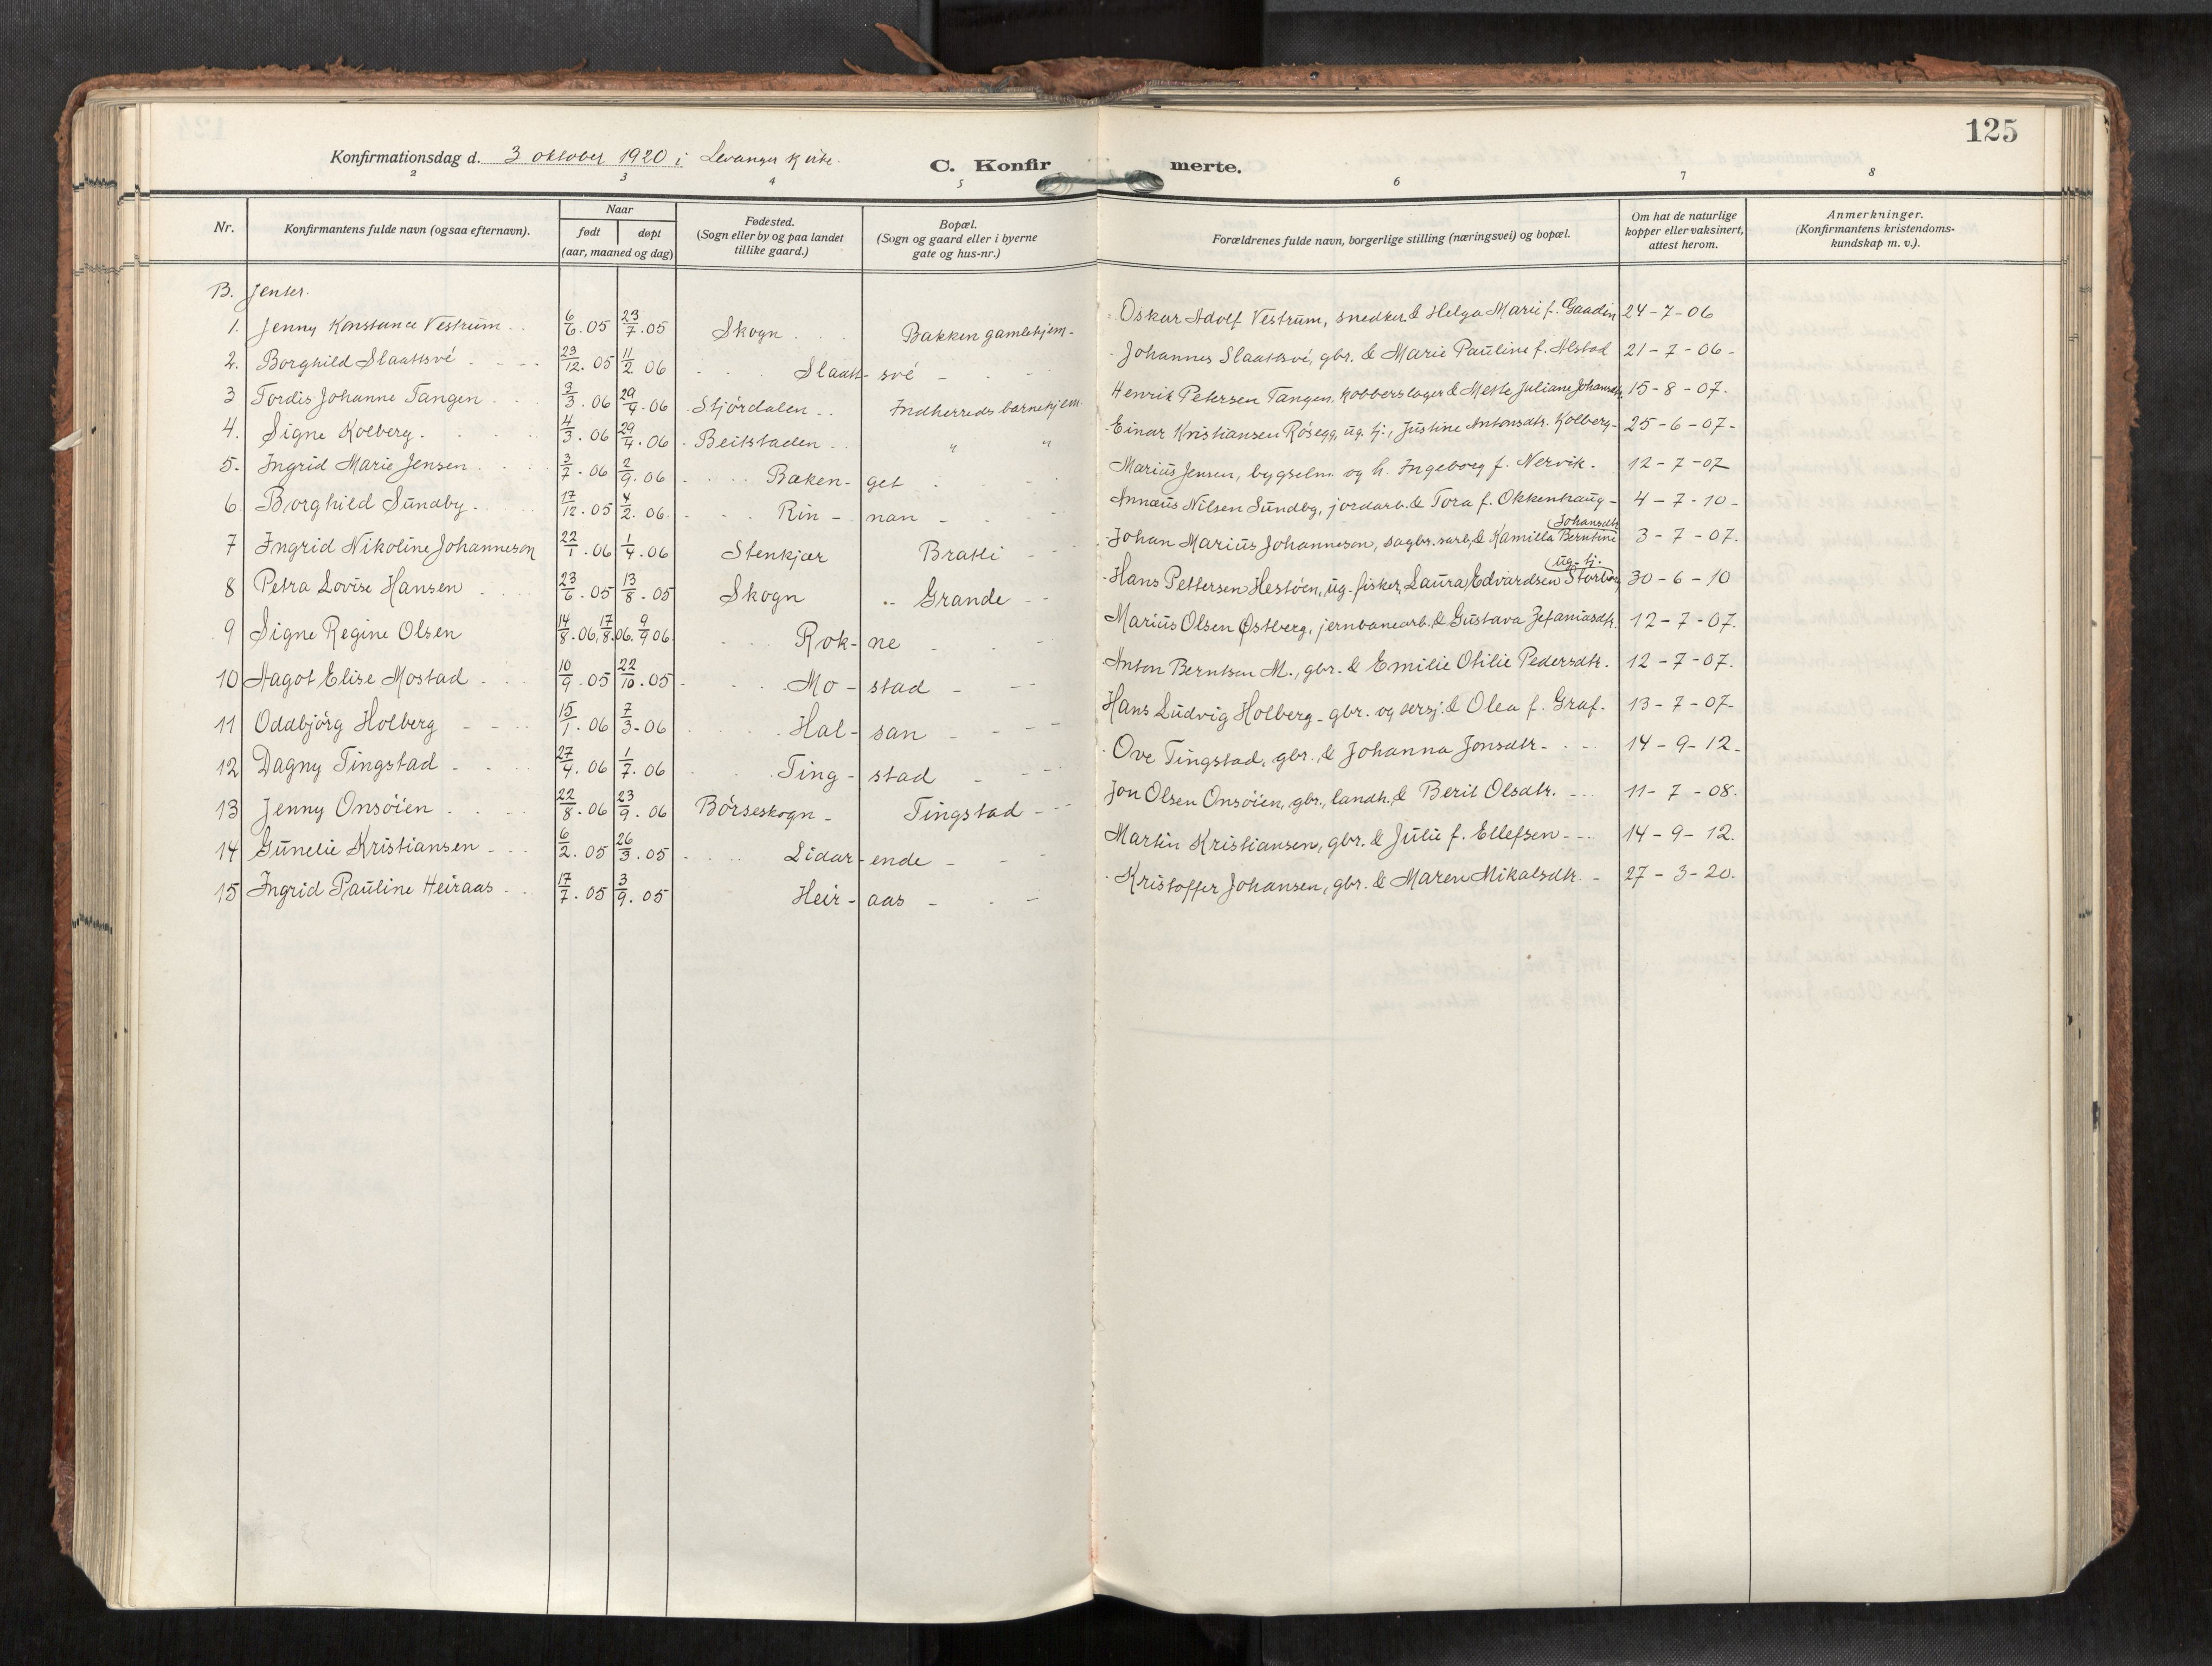 125
Konfirmationsdag d. 3 oktober 1920 i Levanger kirke.
C. Konfirmerte.
2 3 4 5 6 7 8
Nr. Konfirmantens fulde navn (ogsaa efternavn). Naar født døpt (aar, maaned og dag) Fødested. (Sogn eller by og paa landet tillike gaard.) Bopæl. (Sogn og gaard eller i byerne gate og hus-nr.) Forældrenes fulde navn, borgerlige stilling (næringsvei) og bopæl. Om hat de naturlige kopper eller vaksinert, attest herom. Anmerkninger. (Konfirmantens kristendoms-kundskap m. v.).
B. Jenter.
1. Jenny Konstance Vestrum 6/6.05 23/7.05 Skogn Bakken gamlehjem - Oskar Adolf Vestrum, snedker & Helga Marie f. Gaadin 24-7-06
2. Borghild Slaattsvé 29/12.05 11/2.06 Slaatt-své Johannes Slaattsvé, gbr. & Marie Pauline f. Alstad 21-7-06-
3 Tordis Johanne Tangen 3/3.06 29/4.06 Stjördalen Indherreds barnehjem Henrik Petersen Tangen, kobberslager & Mette Juliane Johansdtr. 15-8-07.
4. Signe Kolberg. 4/3.06 29/4.06 Beitstaden " " Einar Kristiansen Rösegg, ug. tj., Justine Antonsdtr. Kolberg- 25-6-07-
5. Ingrid Marie Jensen 3/7.06 2/9.06 Baken-get Marius Jensen, bygselm. og h. Ingeborg f. Nervik. 12-7-07
6 Borghild Sundby. 17/12.05 4/2.06 Rin-nan Annæus Nilsen Sundby, jordarb. & Tora f. Okkenhaug- 4-7-10-
7 Ingrid Nikoline Johanneson 22/1.06 1/4.06 Stenkjær Bratli Johan Marius Johanneson, sagbr.sarb, & Kamilla Berntine Johansdtr 3-7-07.
8 Petra Lovise Hansen 23/6.05 13/8.05 Skogn Grande Hans Pettersen Hestöen, ug. fisker, Laura Edvardsen ug. tj. 30-6-10
9 Signe Regine Olsen 14/8.06, 17/8.06. 9/9 06 Rok-ne Marius Olsen Østberg, jernbanearb. & Gustava Zefaniasdtr. 12-7-07.
10 Aagot Elise Mostad 10/9.05 22/10.05 Mo-stad Anton Berntsen M., gbr. & Emilie Otilie Pedersdtr. 12-7-07.
11 Oddbjörg Holberg 15/1.06 7/3-06 Hal-san Hans Ludvig Holberg - gbr. og sersj. & Olea f. Graf. 13-7-07-
12 Dagny Tingstad 27/4.06 1/7.06 Ting-stad Ove Tingstad, gbr., & Johanna Jonsdtr- 14-9-12-
13 Jenny Onsöien 22/8.06 23/9.06 Börseskogn Tingstad Jon Olsen Onsöien, gbr., landh., & Berit Olsdtr. 11-7-08.
14 Gunelie Kristiansen 6/2.05 26/3.05 Lidar-ende Martin Kristiansen, gbr. & Julie f. Ellefsen 14-9-12.
15 Ingrid Pauline Heiraas 17/7.05 3/9.05 Heir-aas Kristoffer Johansen, gbr. & Maren Mikalsdtr. 27-3-20.